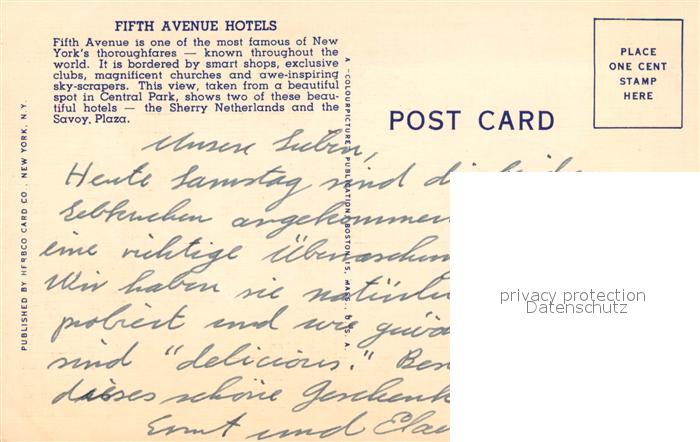 FIFTH AVENUE HOTELS
Fifth Avenue is one of the most famous of New
York's thoroughfares — known throughout the
world. It is bordered by smart shops, exclusive
clubs, magnificent churches and awe-inspiring
sky-scrapers. This view, taken from a beautiful
spot in Central Park, shows two of these beau-
tiful hotels — the Sherry Netherlands and the
Savoy, Plaza.
PUBLISHED BY HERBCO CARD CO., NEW YORK, N.Y.
A "COLOURPICTURE" PUBLICATION, BOSTON 15, MASS., U. S. A.
POST CARD
PLACE
ONE CENT
STAMP
HERE
Unsere Lieben,
Heute Samstag sind die
Lebkuchen angekommen
eine richtige
Wir haben sie
probiert und wie
sind "delicious."
dieses schöne
Ernst und
privacy protection
Datenschutz